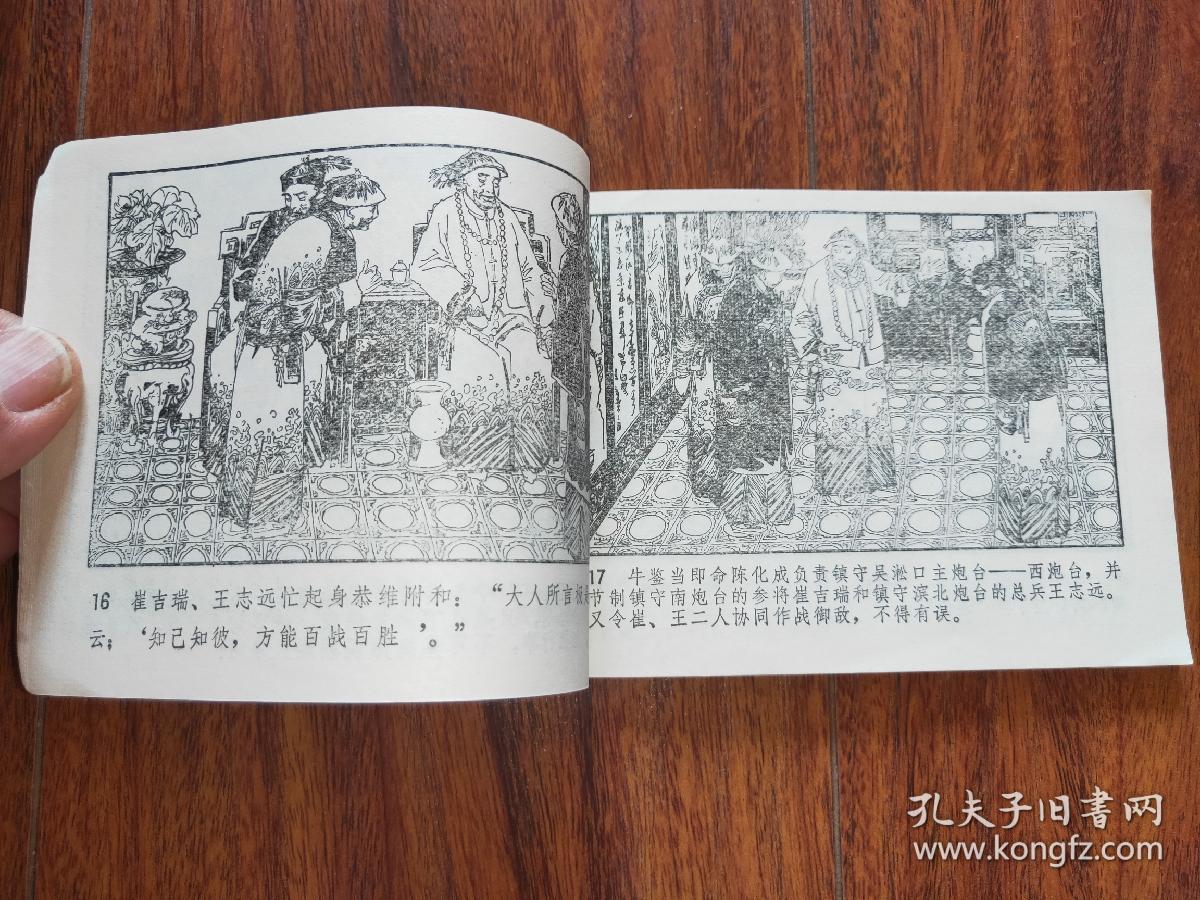 16 崔吉瑞、王志远忙起身恭维附和：“大人所言极
云；‘知己知彼，方能百战百胜’。”
17 牛鉴当即命陈化成负责镇守吴淞口主炮台——西炮台，并
节制镇守南炮台的参将崔吉瑞和镇守滨北炮台的总兵王志远。
又令崔、王二人协同作战御敌，不得有误。
孔夫子旧書网
www.kongfz.com